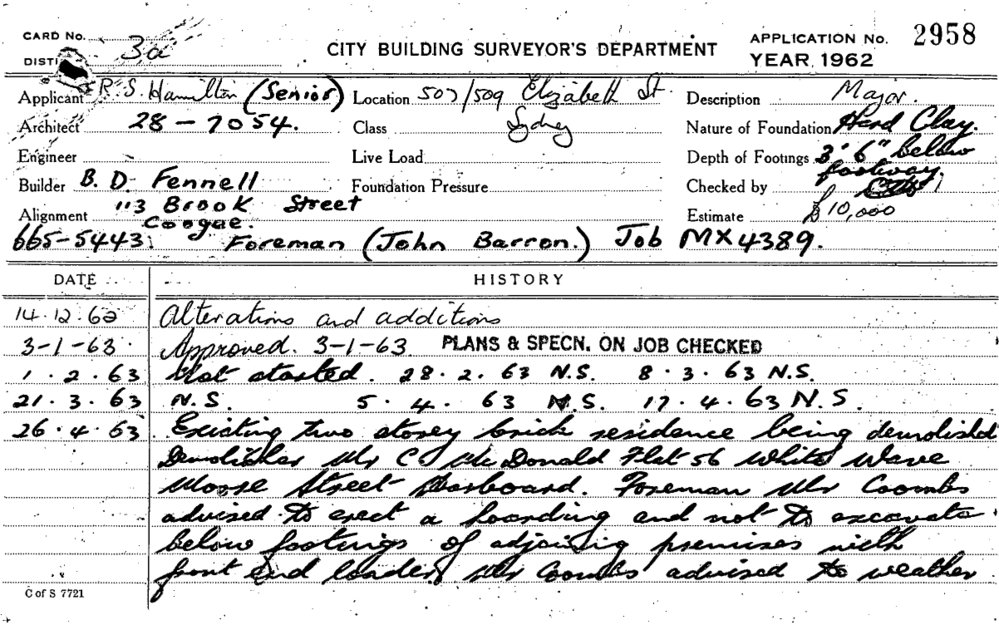 CARD No. 3a
CITY BUILDING SURVEYOR'S DEPARTMENT
APPLICATION No. 2958
DISTI
YEAR 1962
Applicant R. S. Hamilton (Senior) Location 507/509 Elizabeth St. Description Major.
Architect 28-7054. Class Sydney Nature of Foundation Hard Clay.
Engineer Live Load Depth of Footings 3' 6" below
footway.
Builder B. D. Fennell Foundation Pressure Checked by
113 Brook Street
Alignment Coogee. Estimate £10,000
665-5443. Foreman (John Barron.) Job MX4389.
DATE HISTORY
14.12.62 Alterations and additions
3-1-63. Approved. 3-1-63. PLANS & SPECN. ON JOB CHECKED
1.2.63 Not started. 28.2.63 N.S. 8.3.63 N.S.
21.3.63 N.S. 5.4.63 N.S. 17.4.63 N.S.
26.4.63 Existing two storey brick residence being demolished
Demolisher Mr C. Mc Donald Flat 56 White Wave
Moore Street. Foreman Mr Coombs
advised to erect a hoarding and not to excavate
below footings of adjoining premises with
front end loader, Mr Coombs advised to weather
C of S 7721